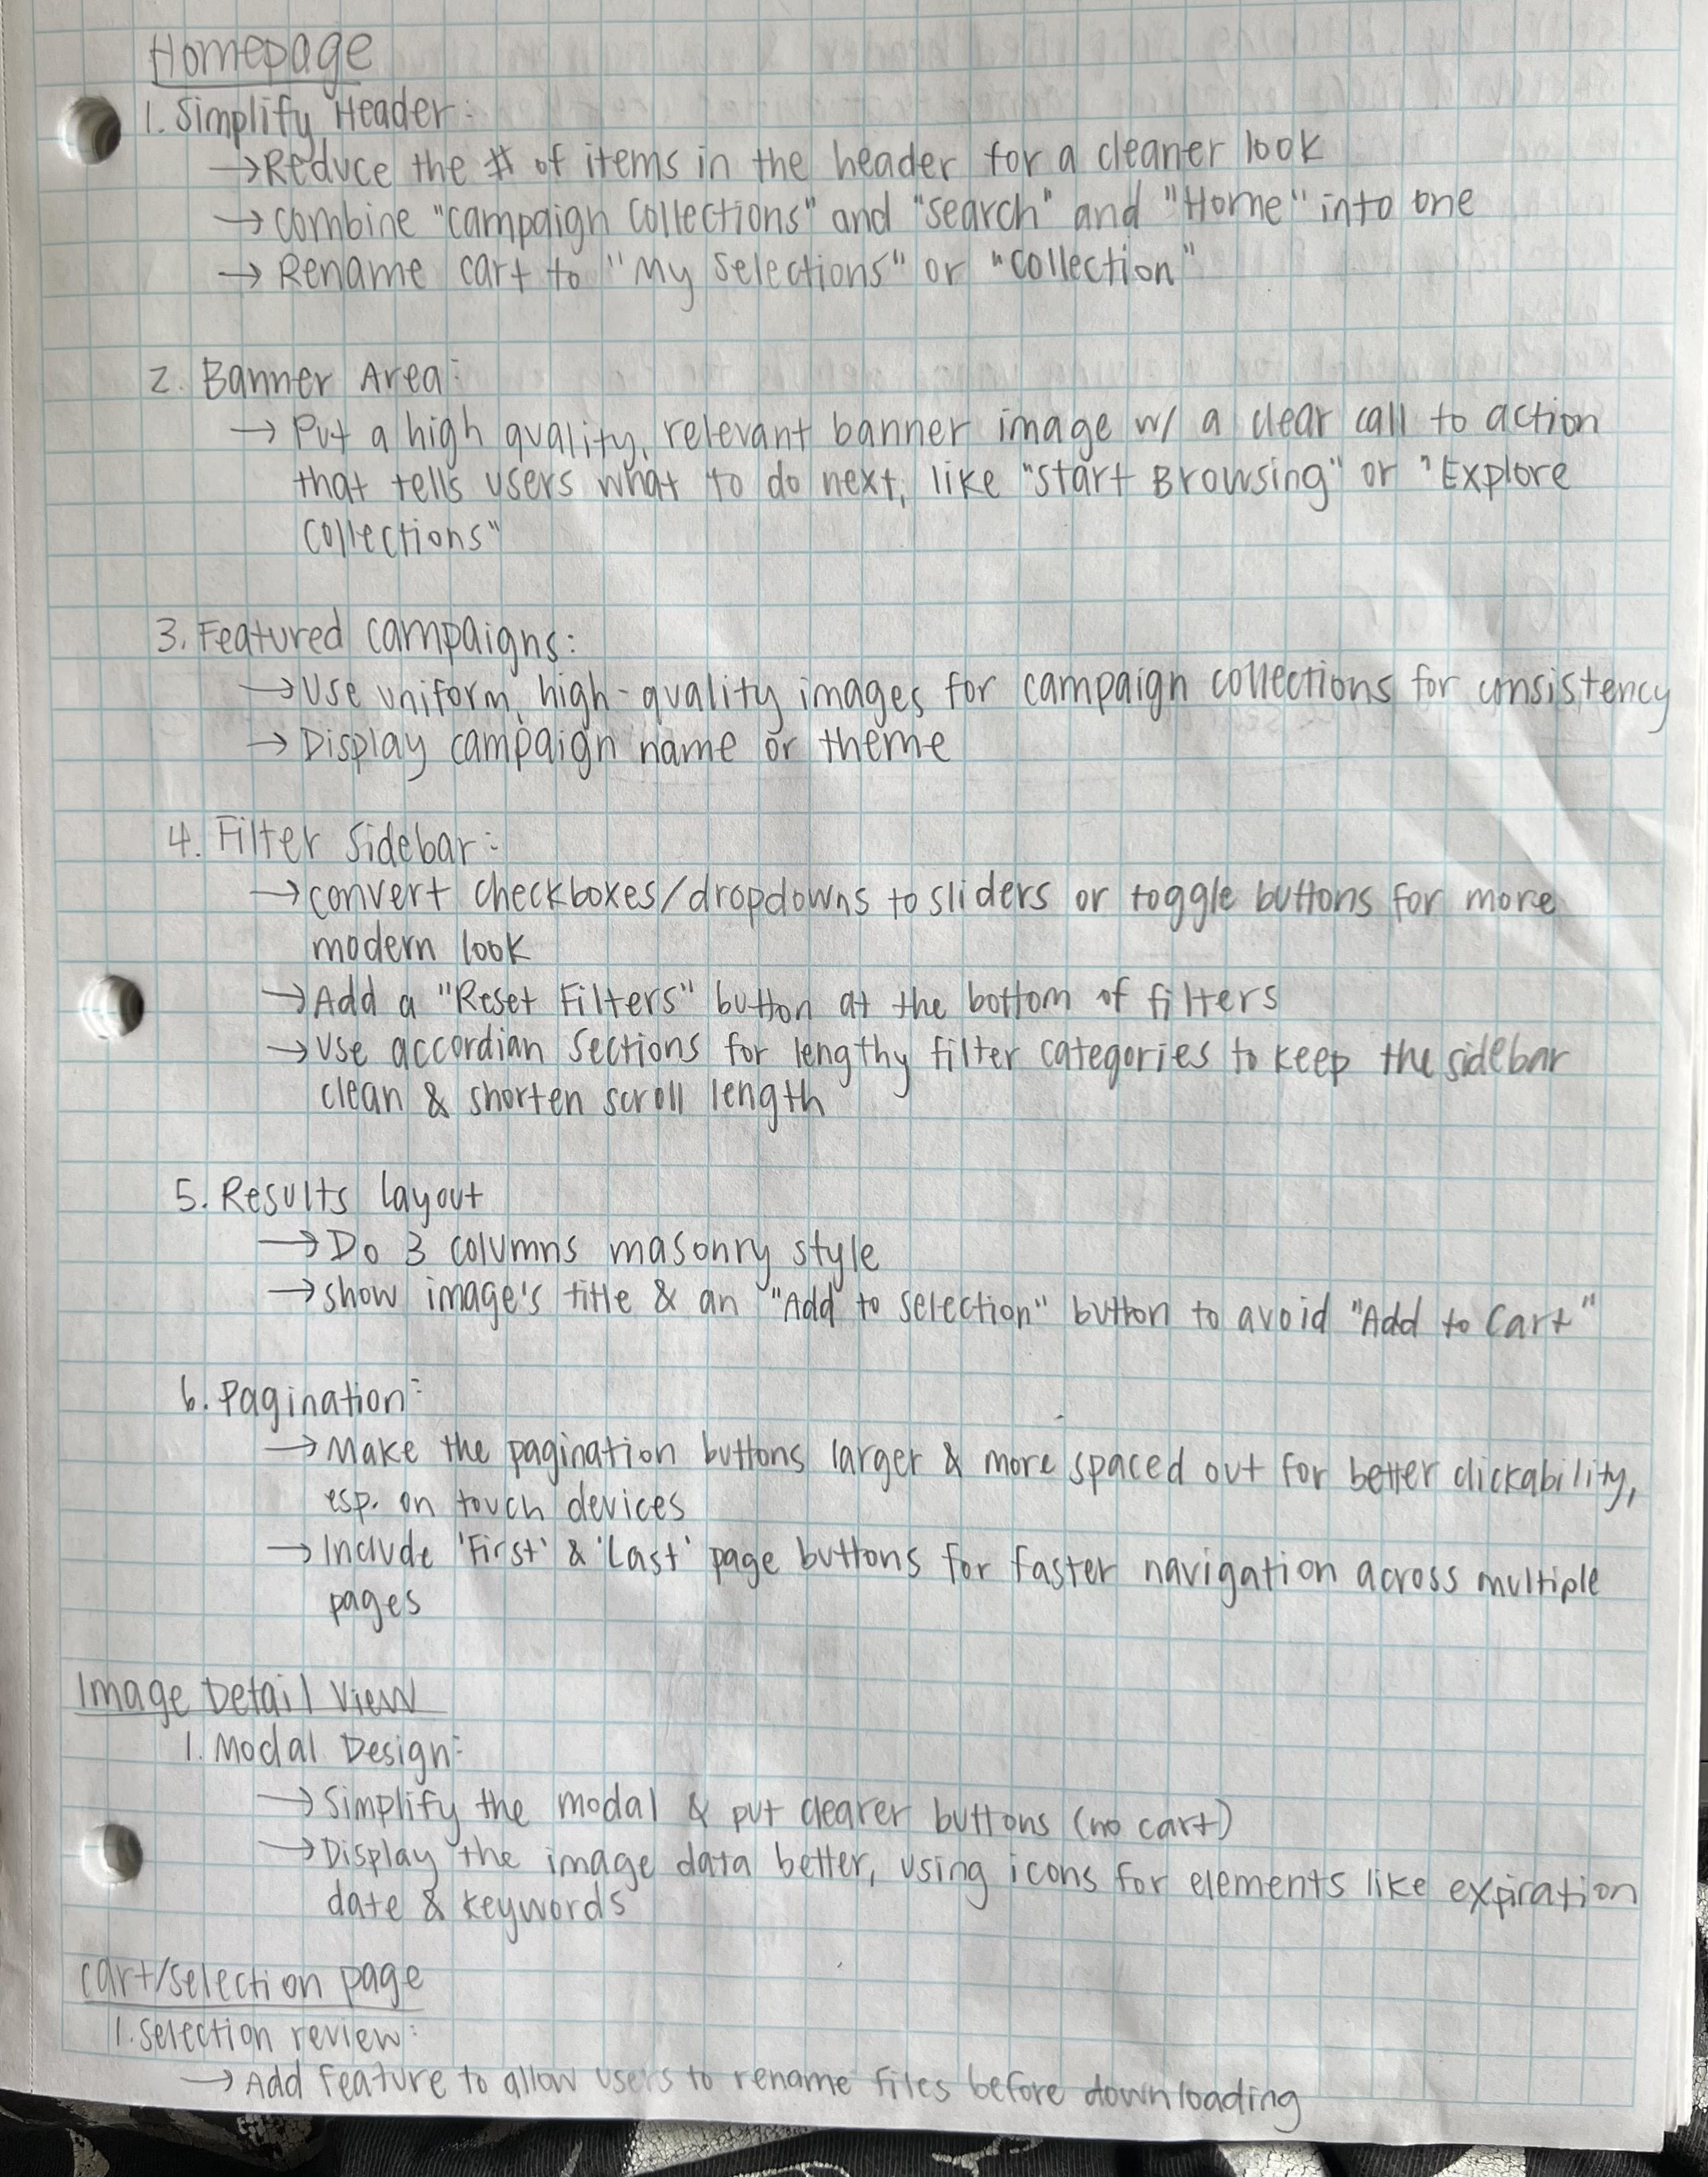 Homepage
1. Simplify Header:
→ Reduce the # of items in the header for a cleaner look
→ combine "campaign collections" and "search" and "Home" into one
→ Rename cart to "My Selections" or "collection"
2. Banner Area:
→ Put a high quality, relevant banner image w/ a clear call to action
that tells users what to do next, like "start Browsing" or "Explore
Collections"
3. Featured campaigns:
→ Use uniform, high-quality images for campaign collections for consistency
→ Display campaign name or theme
4. Filter Sidebar:
→ convert checkboxes/dropdowns to sliders or toggle buttons for more
modern look
→ Add a "Reset Filters" button at the bottom of filters
→ Use accordian sections for lengthy filter categories to keep the sidebar
clean & shorten scroll length
5. Results layout
→ Do 3 columns masonry style
→ show image's title & an "Add to selection" button to avoid "Add to Cart"
6. Pagination:
→ Make the pagination buttons larger & more spaced out for better clickability,
esp. on touch devices
→ Include 'First' & 'Last' page buttons for faster navigation across multiple
pages
Image Detail View
1. Modal Design:
→ Simplify the modal & put clearer buttons (no cart)
→ Display the image data better, using icons for elements like expiration
date & keywords
cart/selection page
1. selection review:
→ Add feature to allow users to rename files before downloading